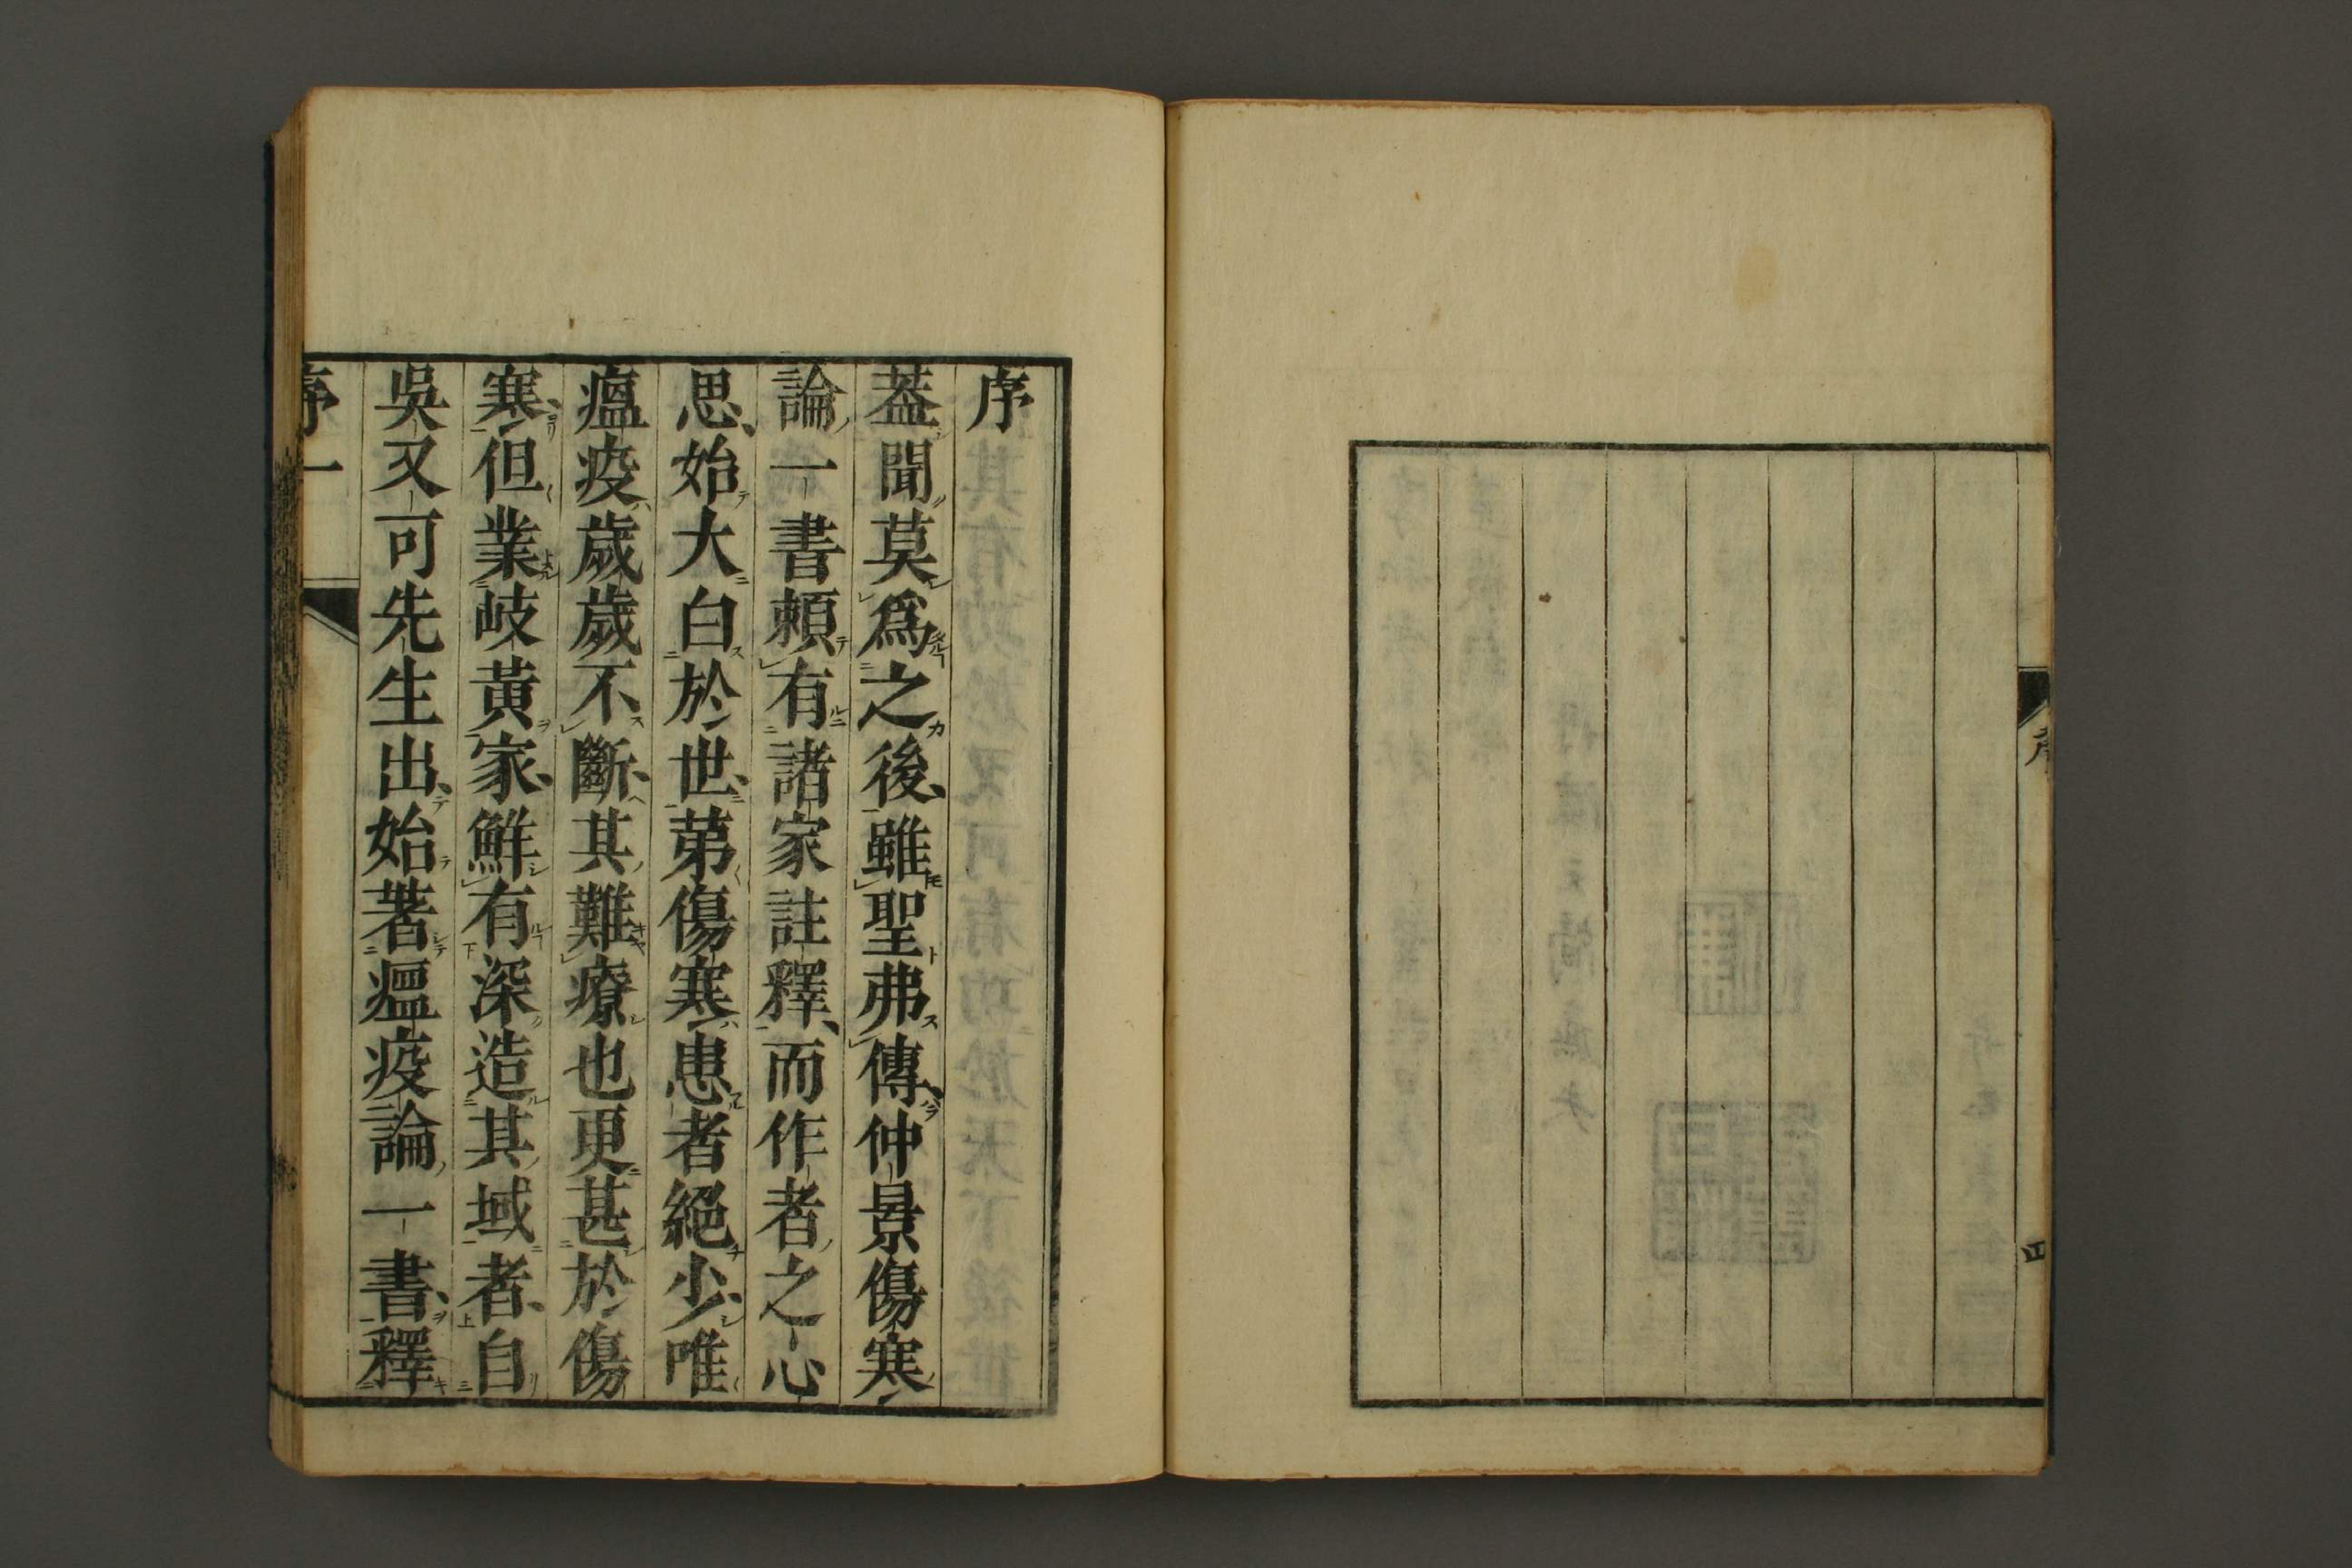 序
四
序
蓋聞莫爲之後雖聖弗傳仲景傷寒
論一書頼有諸家註釋而作者之心
思始大白於世苐傷寒患者絕少唯
瘟疫歲歲不斷其難療也更甚於傷
寒但業岐黃家鮮有深造其域者自
吳又可先生出始著瘟疫論一書釋
序一